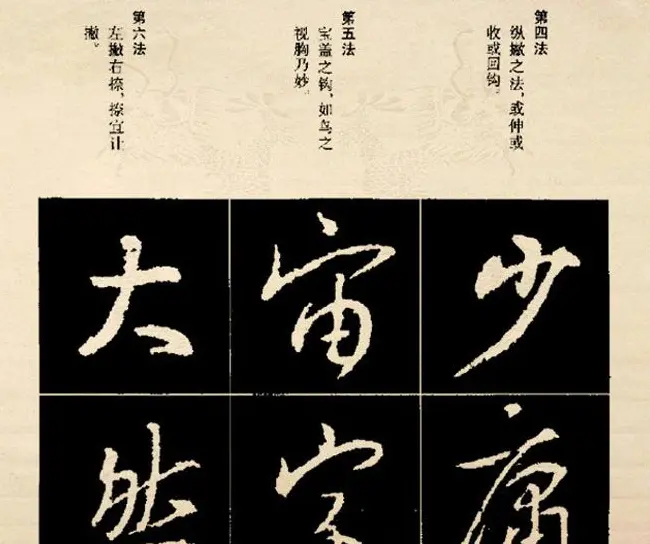 第四法
纵撇之法，或伸或
收或回钩。
少
庸
第五法
宝盖之钩，如鸟之
视胸乃妙。
宙
字
第六法
左撇右捺，捺宜让
撇。
大
然